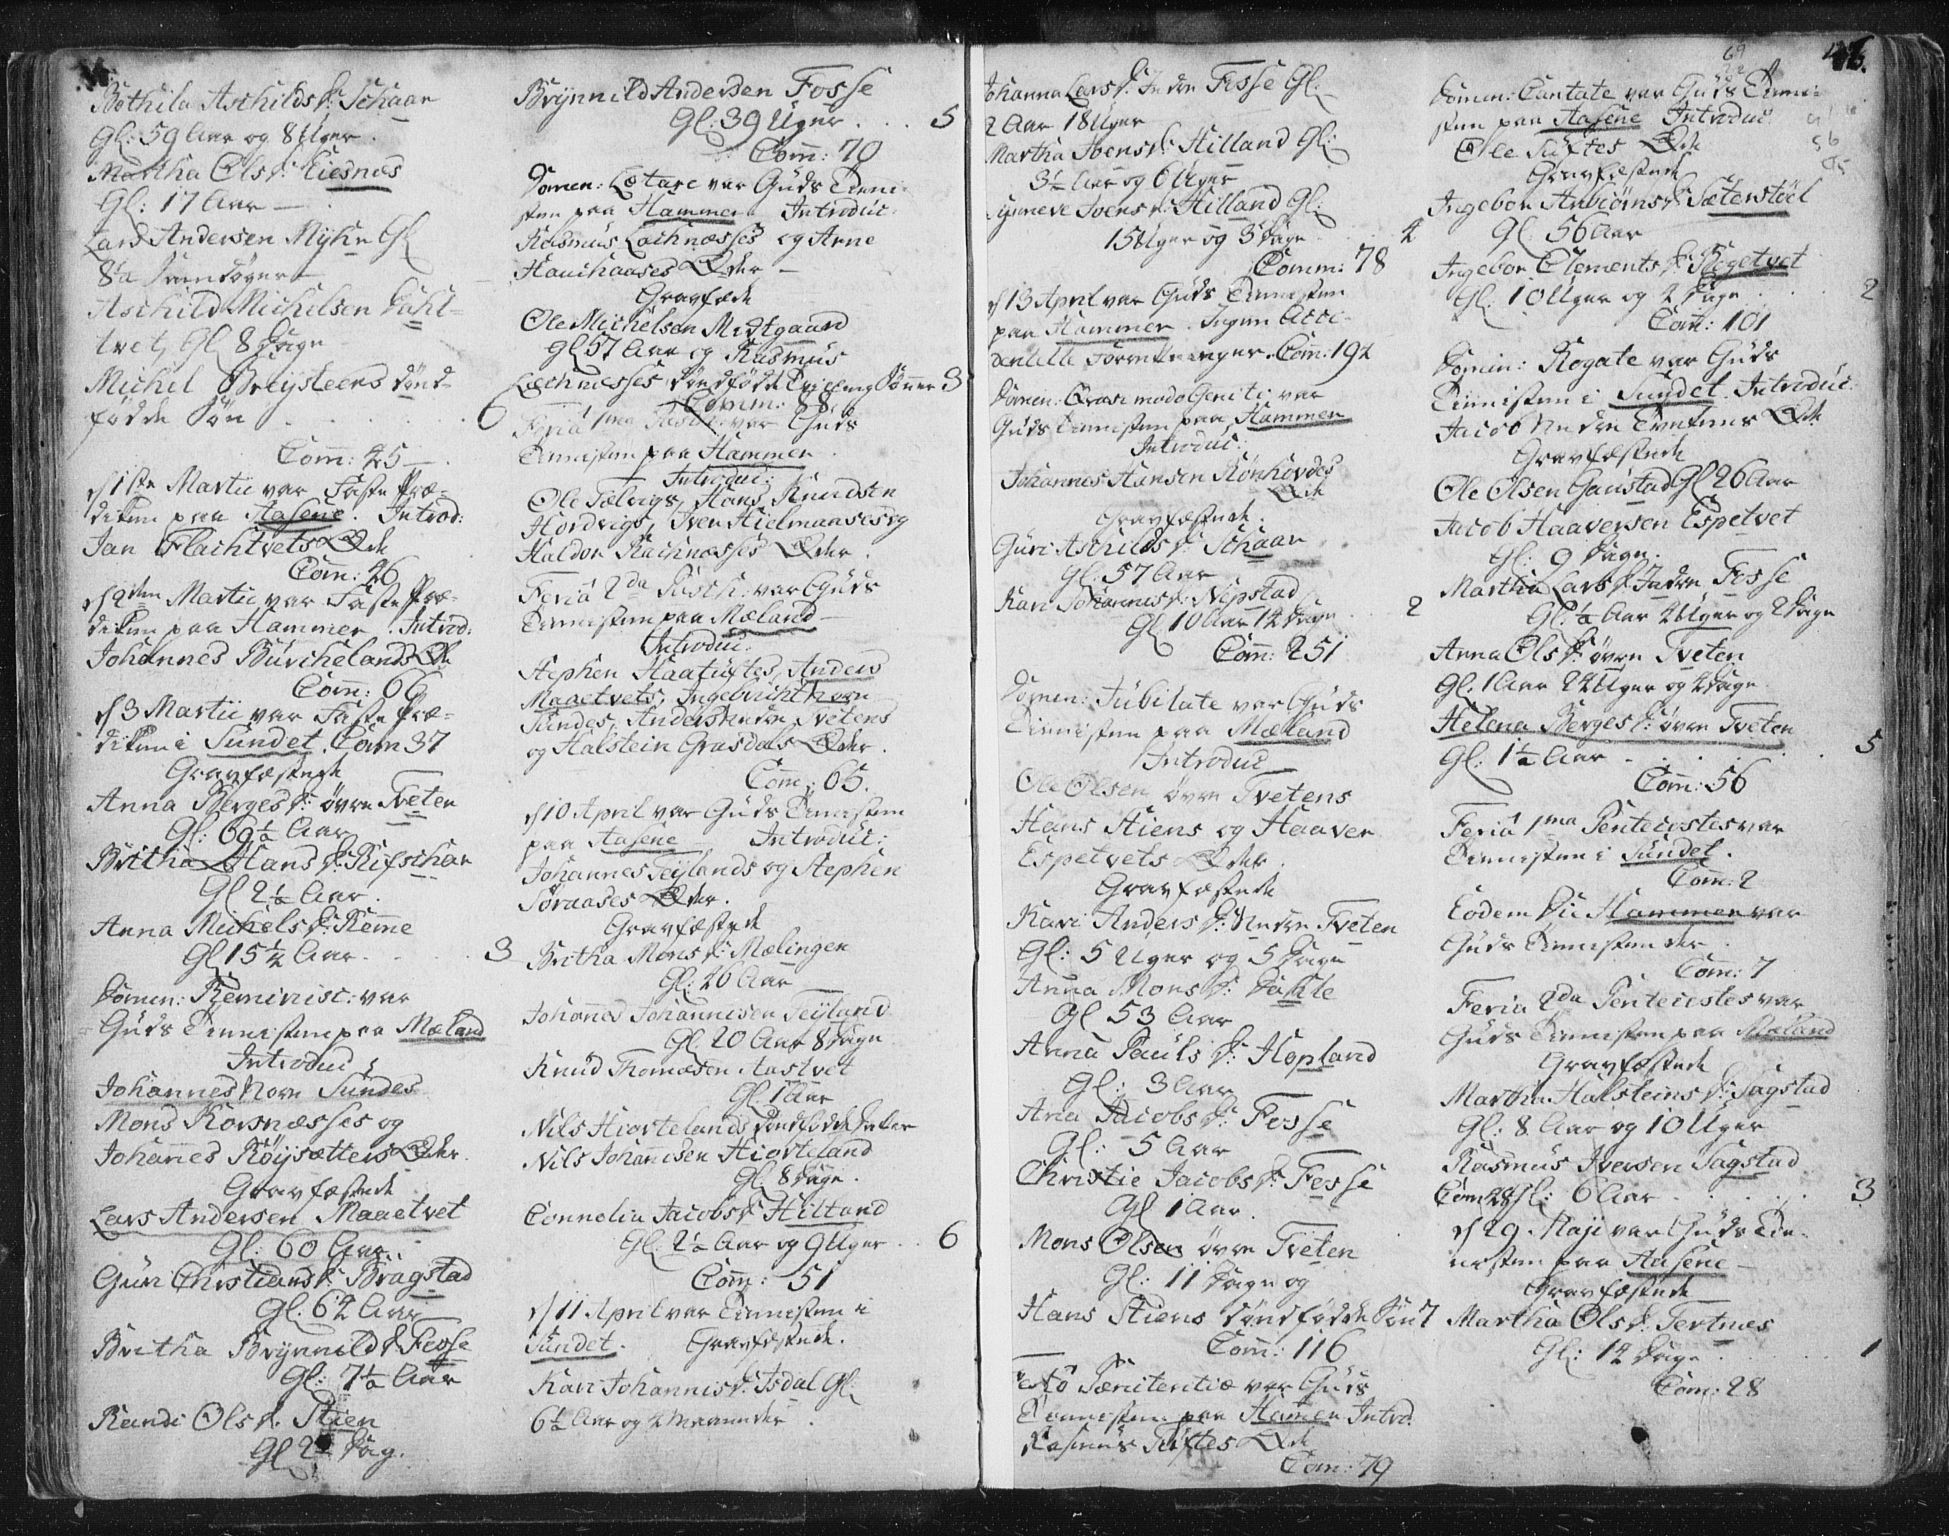 Bothila Aschilds D: Schaar
Gl: 59 Aar og 8 Uger.
Martha Ols D: Eiesnæs
Gl: 17 Aar —
Lars Andersen Myhre Gl
8½
Aschild Michelsen Dahl-
tvet, Gl 8 Dage
Michel Breysteens dönd-
fødde Sön . . . . . 6
Com: 45 —
d 1ste Martii var Faste Præ-
diken paa Aasene. Introd:
Jan Flachtvets Qde
Com: 46
d 2den Martii var Faste Præ-
diken paa Hammer. Introd:
Johannes Burchelands Qde
Com: 66
d 3 Martii var Faste Præ-
diken i Sundet. Com 37
Gravfæstede
Anna Børges D: øvre Tveten
Gl: 69½ Aar
Britha Hans D: Rifschar
Gl 2½ Aar.
Anna Michels D: Remme
Gl 15½ Aar . . . . 3
Domin: Reminisc: var
Guds Tienisten paa Mæland
Introduc
Johannes Norn Sundes
Mons Kosnæsses og
Johannes Röysætters Qder.
Gravfæstede
Lars Andersen Maaetvet
Gl: 60 Aar.
Guri Christians D: Bragstad
Gl: 62 Aar
Britha Brynnild D Fosse
Gl: 7½ Aar
Randi Ols D. Stien
Gl 2 Dag.
Brynnild Andersen Fosse
Gl: 39 Uger . . . 5
Com: 70
Domin: Lætare var Guds Tieni-
sten paa Hammer. Introduc:
Rasmus Lochnæsses og Arne
Hauchaases Qder —
Gravfæste
Ole Michelsen Mestgaard
Gl 57 Aar og Rasmus
Lochnæsses döndfødde Tvilling Sönner 3
Comm: 88
Feria 1ma Pasch: var Guds
Tienisten paa Hammer.
Introduc:
Ole Tælvigs, Hans Knudsen
Hordvigs, Iver Hielmaases og
Haldor Rachnæsses Qder.
Feria 2da Pasch: var Guds
Tienisten paa Mæland
Introduc:
Stephen Haatuftes, Anders
Maaetvets, Ingebricht Norn
Sundes, Anders Nedre Tvetens
og Halstein Grasdals Qder.
Com: 65.
d 10 April var Guds Tienisten
paa Aasene Introduc:
Johannes Teylands og Stephen
Soraases Qder.
Gravfæstede
Britha Mons D: Mælingen
Gl: 26 Aar
Johannes Johannesen Teyland
Gl: 20 Aar 8 Dage
Knud Thomesen Aastvet
Gl: 1 Aar
Nils Hiortelands döndfødde Datter
Nils Johannesen Hiorteland
Gl: 8 Dage.
Connolia Jacobs D: Hilland
Gl: 2½ Aar og 9 Uger . . 6
Com: 51
d 11 April var Tienisten i
Sundet. Gravfæstede.
Kari Johannis D: Isdal Gl:
6½ Aar og 2 Maaneder.
Johanna Lars D: Indre Fosse Gl:
2 Aar 18 Uger
Martha Joens D: Hilland Gl:
3½ Aar og 6 Uger
Synneve Joens D: Hilland Gl:
15 Uger og 3 Dage . . 4
Comm: 78
d 13 April var Guds Tienisten
paa Hammer. Ingen Acci-
Com: 192
Domin: Quasimodo Geniti var
Guds Tienisten paa Hammer
Introduc:
Johannes Hansen Rönhovdes
Qde
Gravfæstede.
Guri Aschilds D: Schaar
Gl: 57 Aar
Kari Johannis D: Nepstad
Gl 10 Aar 12 Dage . . 2
Com: 251
Domin: Jubilate var Guds
Tienisten paa Mæland
Introduc
Ole Olsen øvre Tvetens
Hans Stiens og Haaver
Espetvets Qder.
Gravfæstede
Kari Anders D: Nedre Tveten
Gl: 5 Uger og 5 Dage
Anna Mons D: Dahle
Gl 53 Aar
Anna Pauls D: Hopland
Gl: 3 Aar
Ana Jacobs D: Fosse
Gl: 5 Aar
Christie Jacobs D: Fosse
Gl 1 Aar.
Mons Olsen øvre Tveten
Gl: 11 Dage og
Hans Stiens döndfødde Sön 7
Com: 116
Festo Pæniteritiæ var Guds
Tienisten paa Hamer Introd:
Rasmus Tuftes Qde
Com: 79
Domin: Cantate var Guds Tieni-
sten paa Aasene Introduc
Ole Tuftes Qde
Gravfæstede
Ingebor Anbiörns D: Sæterstöl
Gl. 56 Aar
Ingebor Clements D: Bøgetvet
Gl: 10 Uger og 2 Dage . . . 2
Com: 101
Domin: Rogate var Guds
Tienisten i Sundet. Introduc:
Jacob Nedre Tvetens Qde
Gravfæstede
Ole Olsen Gaustad Gl 26 Aar
Jacob Haaversen Espetvet
Gl: 9 Dage.
Martha Lars D: Indre Fosse
Gl: ½ Aar 2 Uger og 2 Dage
Anna Ols D: øvre Tveten
Gl. 1 Aar 22 Uger og 2 Dage
Helena Børges D: øvre Tveten
Gl: 1½ Aar . . . . . 5
Com: 56
Feria 1ma Pentecostes var
Tienisten i Sundet.
Com: 2
Eodem Die Hammer var
Guds Tienisten der.
Com: 7
Feria 2da Pentecostes var
Guds Tienisten paa Mæland
Gravfæstede
Martha Halsteins D: Sagstad
Gl: 8 Aar og 10 Uger
Rasmus Iversen Sagstad
Com: 28 Gl: 6 Aar . . . . . 3
d 29 Maji var Guds Tie-
nisten paa Aasene —
Gravfæstede
Martha Ols D: Tertnes
Gl: 12 Dage . . . 1
Com: 28